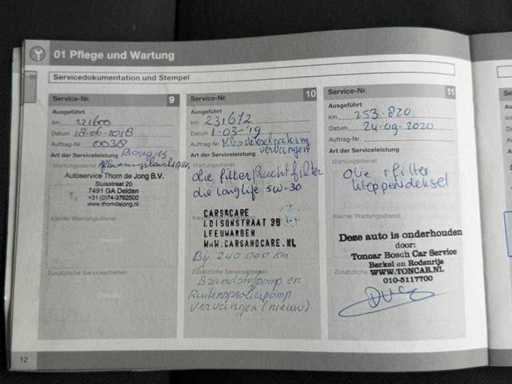 01 Pflege und Wartung
Servicedokumentation und Stempel
Service-Nr. 9
Ausgeführt
km
Datum 18-06-2018
Auftrag-Nr.
Art der Serviceleistung
Autoservice Thom de Jong B.V.
Sluisstraat 20
7491 GA Delden
+31 (0)74-3762500
www.thomdejong.nl
Kleiner Wartungsdienst
Zusätzliche Serviceleistungen
Service-Nr. 10
Ausgeführt
km 231672
Datum 1-03-'19
Auftrag-Nr.
vervangen
Art der Serviceleistung
olie filter lucht filter
olie longlife 5W-30
CARS&CARE
EDISONSTRAAT 36
LEEUWARDEN
WWW.CARSANDCARE.NL
By 240 000 km
Zusätzliche Serviceleistungen
Brandstofpomp en
vervangen (nieuw)
Service-Nr. 11
Ausgeführt
km 253.820
Datum 24-09-2020
Auftrag-Nr.
Art der Serviceleistung
Wartungsdienst
Olie + filter
kleppendeksel
Kleiner Wartungsdienst
Deze auto is onderhouden
door:
Toncar Bosch Car Service
Berkel en Rodenrijs
WWW.TONCAR.NL
010-5117700
12